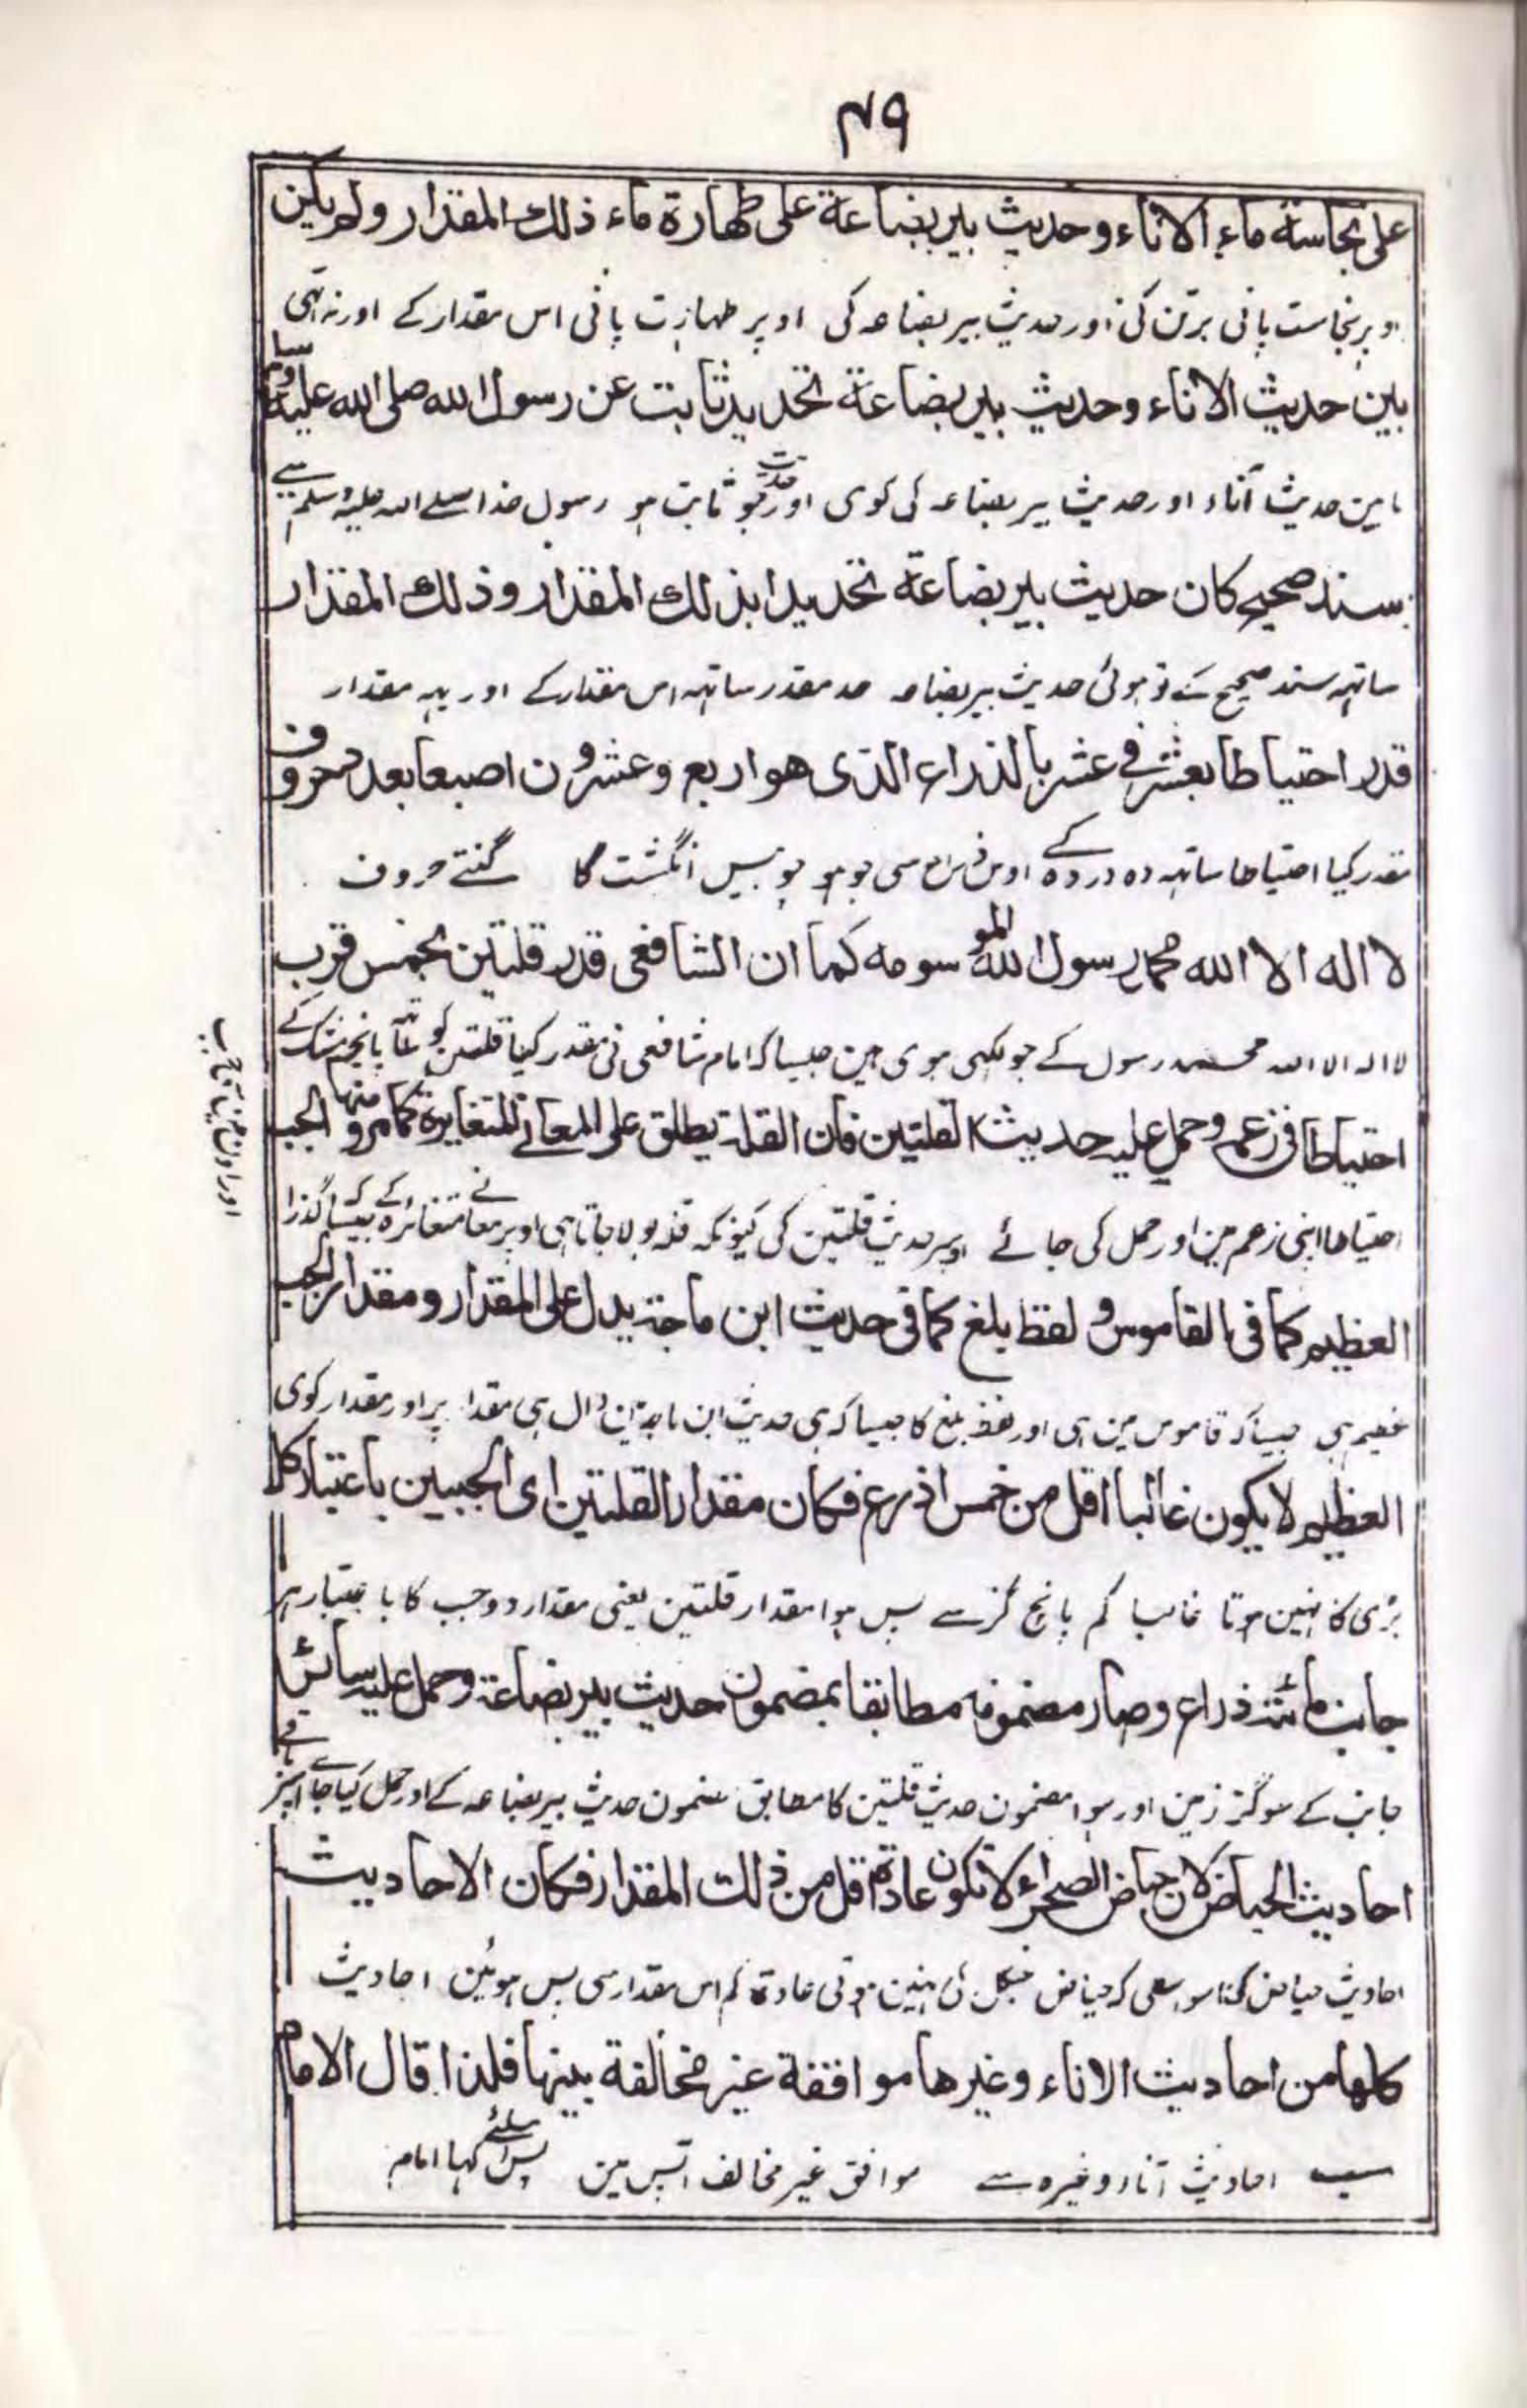 ۴۹
على نجاسة ماء الاناء وحديث بير بضاعة على طهارة ماء ذلك المقدار ولم يكن
اوپر نجاست پانی برتن کی اور حدیث بیر بضاعہ کی اوپر طہارت پانی اس مقدار کے اور نہ تہی
بين حديث الاناء وحديث بير بضاعة تحديد ثابت عن رسول الله صلى الله عليه وسلم
مابین حدیث اناء اور حدیث بیر بضاعہ کی کوی اور حد جو ثابت ہو رسول خدا صلے اللہ علیہ وسلم سے
بسند صحيح كان حديث بير بضاعة تحديدا بذلك المقدار وذلك المقدار
ساتہہ سند صحیح کے تو ہوئی حدیث بیر بضاعہ حد مقدر ساتہہ اس مقدار کے اور یہہ مقدار
قدر احتياطا بعشر في عشر بالذراع الذى هو اربع وعشرون اصبعا بعد حروف
مقدر کیا احتیاطا ساتہہ دہ در دہ کے اوس سی جو ہو چوبیس انگشت کا گنتے حروف
لا اله الا الله محمد رسول الله المو سومه كما ان الشافعى قدر قلتين بخمس قرب
لا الہ الا اللہ محمد رسول کے جو لکہی ہوی ہین جیسا کہ امام شافعی نی مقدر کیا قلتین کو پانچ مشک کے
احتياطا فى زعمه وحمل عليه حديث القلتين فان القلة يطلق على المعانى المتغايرة كما مر ومنها الجب
احتیاطا اپنی زعم مین اور حمل کی جائے اوپر حدیث قلتین کی کیونکہ قلہ بولا جاتا ہی اوپر معانے متغائرہ کے جیسا کہ گذرا
اور اون مین
العظيم كما فى القاموس و لفظ بلغ كما فى حديث ابن ماجة يدل على المقدار ومقدار الجب
عظیم ہی جیسا کہ قاموس مین ہی اور لفظ بلغ کا جیسا کہ ہی حدیث ابن ماجہ دال ہی مقدار پر اور مقدار کوی
العظيم لا يكون غالبا اقل من خمس اذرع فكان مقدار القلتين اى الجبين باعتبار كل
بڑی کا نہین ہوتا غالبا کم پانچ گز سے پس ہوا مقدار قلتین یعنی مقدار دو جب کا با عتبار ہر
جانب مائة ذراع وصار مضمونه مطابقا بمضمون حديث بير بضاعة وحمل عليه سائر
جانب کے سو گز زمین اور ہوا مضمون حدیث قلتین کا مطابق مضمون حدیث بیر بضاعہ کے اور حمل کیا جاے اسپر باقے
احاديث الحياض لان حياض الصحراء لا تكون عادة اقل من ذلك المقدار فكان الاحاديث
احادیث حیاض کی اسو اسطی کہ حیاض جنگل کی نہین ہوتی عادۃ کم اس مقدار سی پس ہوئین احادیث
كلها من احاديث الاناء وغيرها موافقة غير مخالفة بينها فلذا قال الامام
سب احادیث اناء وغیرہ سے موافق غیر مخالف آپس مین پس اسلئے کہا امام